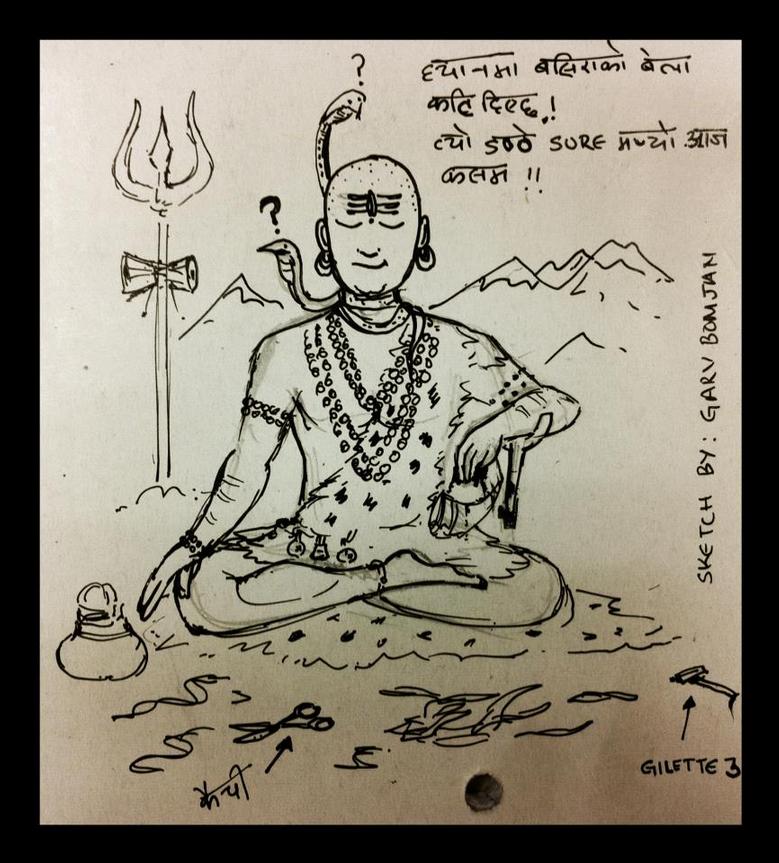 ?
ध्यानमा बसिराको बेला
कटि दिएछ.!
त्यो डण्ठे SURE मर्‍यो आज
कसम !!
?
SKETCH BY: GARV BOMJAN
GILETTE 3
कैची